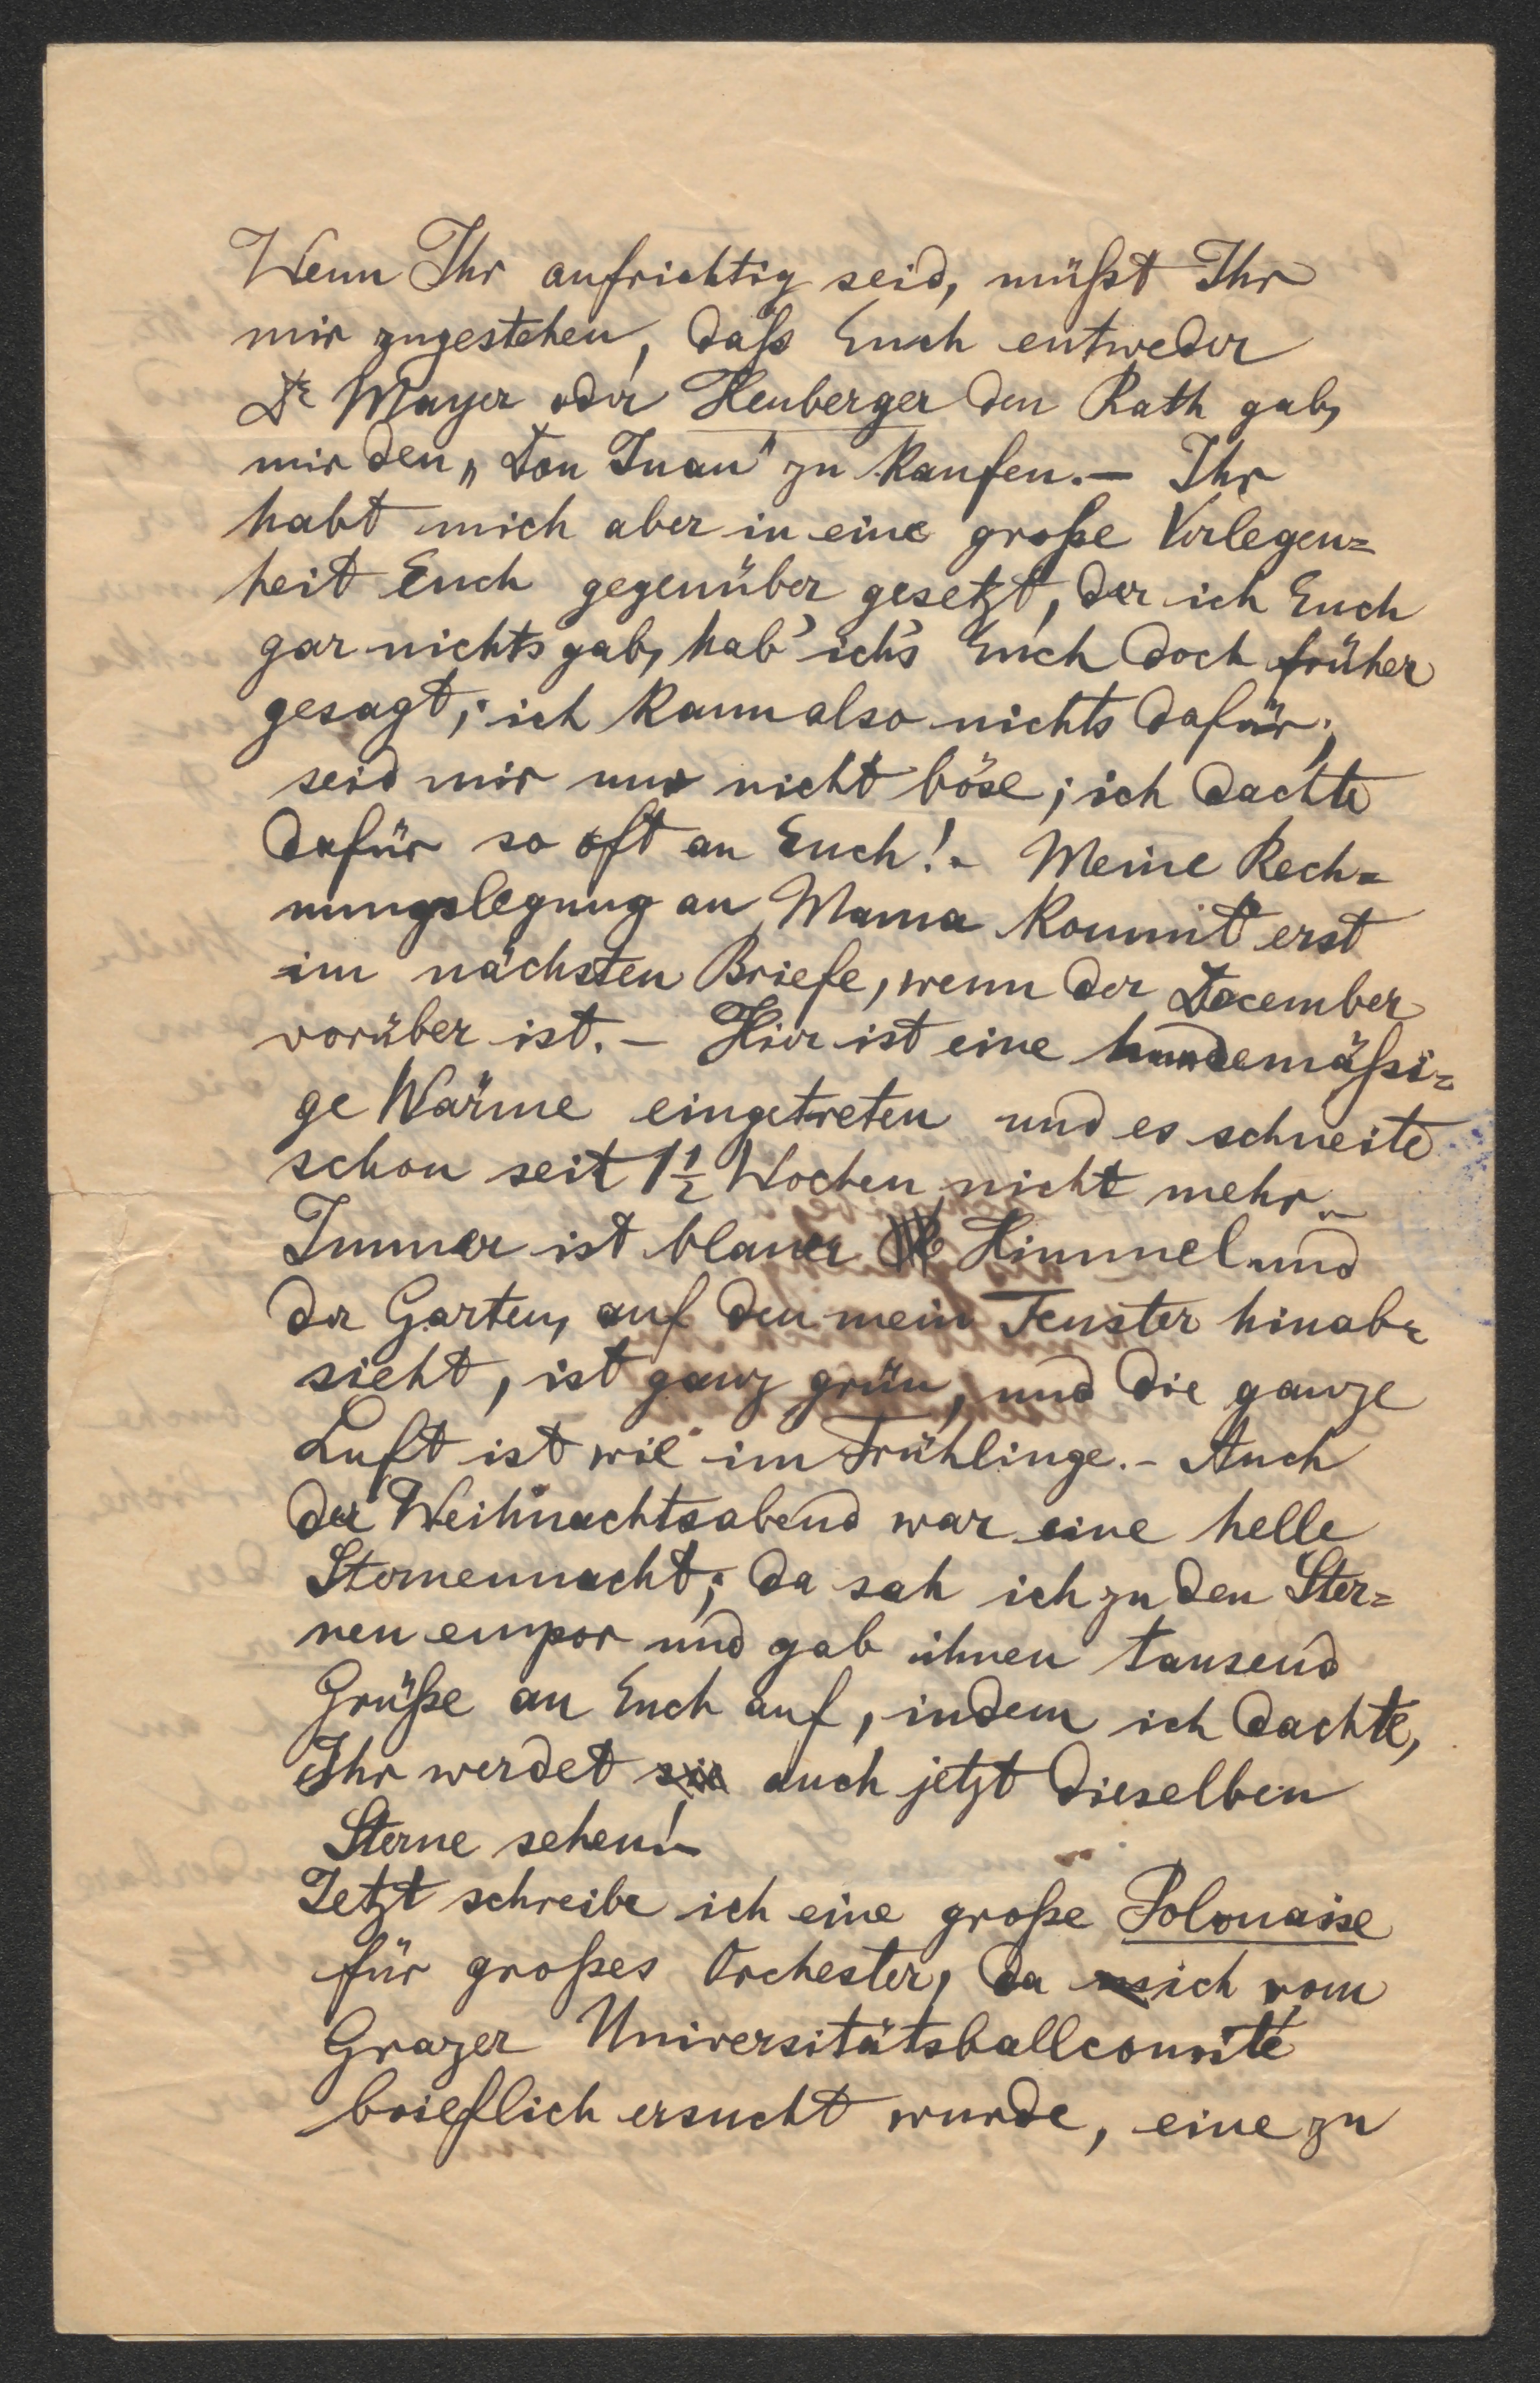 Wenn Ihr aufrichtig seid, müßt Ihr
mir zugestehen, daß Euch entweder
Dr Mayer oder Heuberger den Rath gab,
mir den „Don Juan" zu kaufen. – Ihr
habt mich aber in eine große Verlegen=
heit Euch gegenüber gesetzt, der ich Euch
gar nichts gab, hab' ich's Euch doch früher
gesagt; ich kann also nichts dafür;
seid mir nur nicht böse; ich dachte
dafür so oft an Euch! – Meine Rech=
nungslegung an Mama kommt erst
im nächsten Briefe, wenn der December
vorüber ist. – Hier ist eine hundemäßi=
ge Wärme eingetreten und es schneite
schon seit 1½ Wochen nicht mehr. –
Immer ist blauer Himmel und
der Garten, auf den mein Fenster hinab=
sieht, ist ganz grün, und die ganze
Luft ist wie im Frühlinge. – Auch
der Weihnachtsabend war eine helle
Sternennacht; da sah ich zu den Ster=
nen empor und gab ihnen tausend
Grüße an Euch auf, indem ich dachte,
Ihr werdet sie auch jetzt dieselben
Sterne sehen! –
Jetzt schreibe ich eine große Polonaise
für großes Orchester, da ich vom
Grazer Universitätsballcomité
brieflich ersucht wurde, eine zu